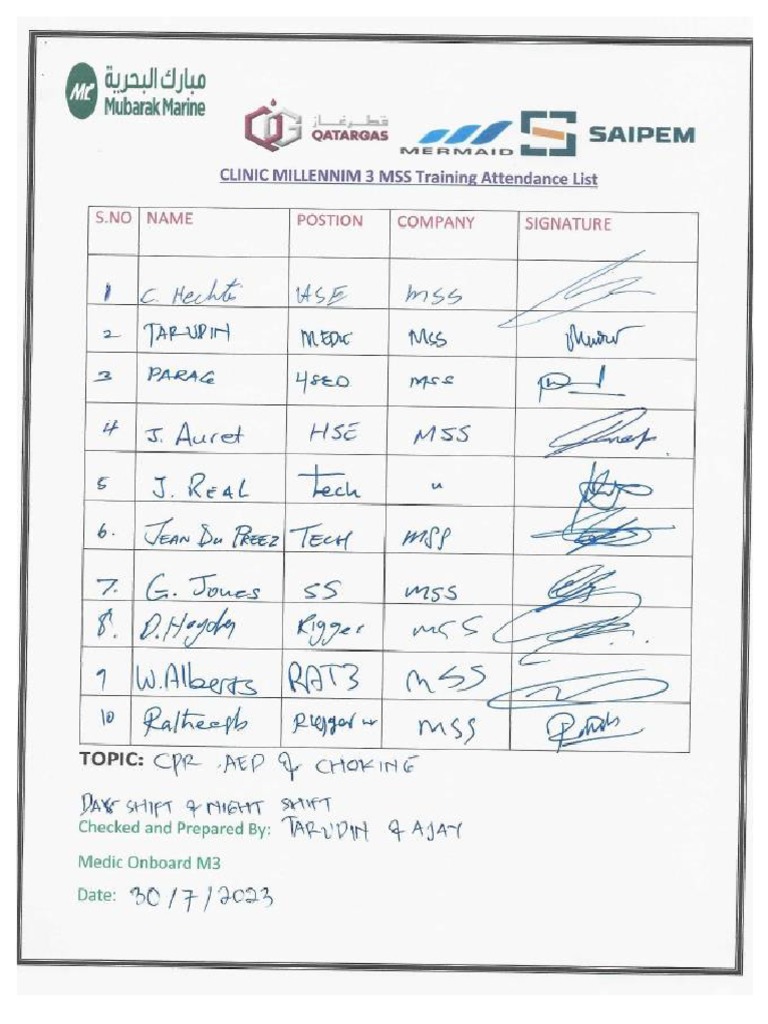 مبارك البحرية
MC Mubarak Marine
قطرغاز
QATARGAS
MERMAID
SAIPEM
CLINIC MILLENNIM 3 MSS Training Attendance List
S.NO NAME POSTION COMPANY SIGNATURE
1 C. Hechti HSE MSS
2 TARUDIN MEDIC MSS
3 PARAG MSS
4 J. Auret HSE MSS
5 J. REAL Tech "
6. JEAN DU PREEZ TECH MSS
7. G. Jones SS MSS
8. D. Hayden Rigger MSS
9 W. Alberts RAT3 MSS
10 Ratheesh MSS
TOPIC: CPR, AED & CHOKING
DAY SHIFT & NIGHT SHIFT
Checked and Prepared By: TARUDIN & AJAY
Medic Onboard M3
Date: 30/7/2023